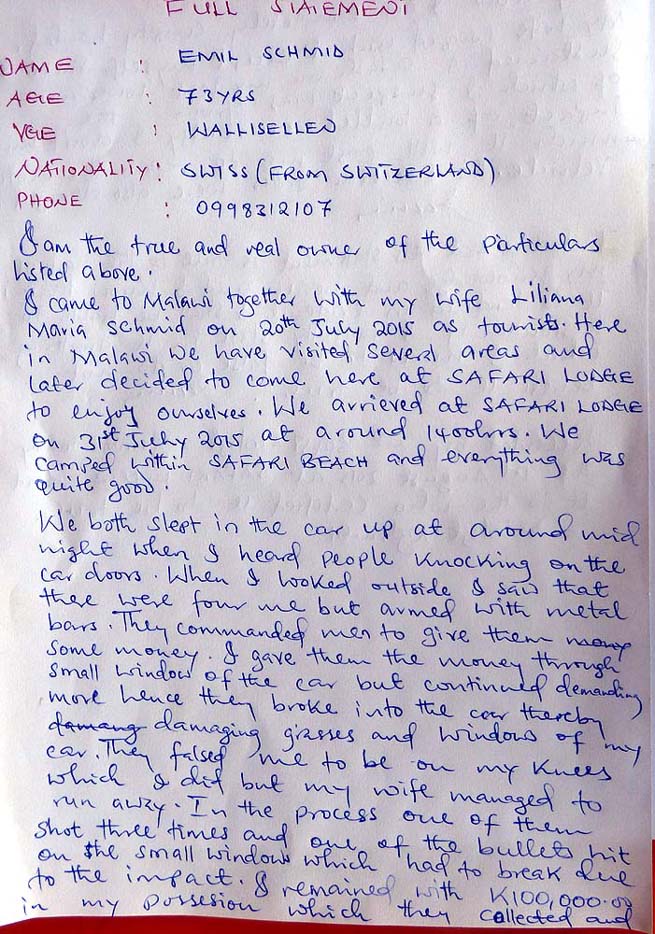 FULL STATEMENT
NAME : EMIL SCHMID
AGE : 73YRS
VGE : WALLISELLEN
NATIONALITY : SWISS (FROM SWITZERLAND)
PHONE : 0998312107
I am the true and real owner of the particulars
listed above.
I came to Malawi together with my wife Liliana
Maria Schmid on 20th July 2015 as tourists. Here
in Malawi we have visited several areas and
later decided to come here at SAFARI LODGE
to enjoy ourselves. We arrieved at SAFARI LODGE
on 31st July 2015 at around 1400hrs. We
camped within SAFARI BEACH and everything was
quite good.
We both slept in the car up at around mid
night when I heard people knocking on the
car doors. When I looked outside I saw that
there were four me but armed with metal
bars. They commanded men to give them money
some money. I gave them the money through
small window of the car but continued demanding
more hence they broke into the car thereby
damang damaging grasses and windows of my
car. They falsed me to be on my knees
which I did but my wife managed to
run away. In the process one of them
shot three times and one of the bullets hit
on the small window which had to break due
to the impact. I remained with K100,000.00
in my possesion which they collected and